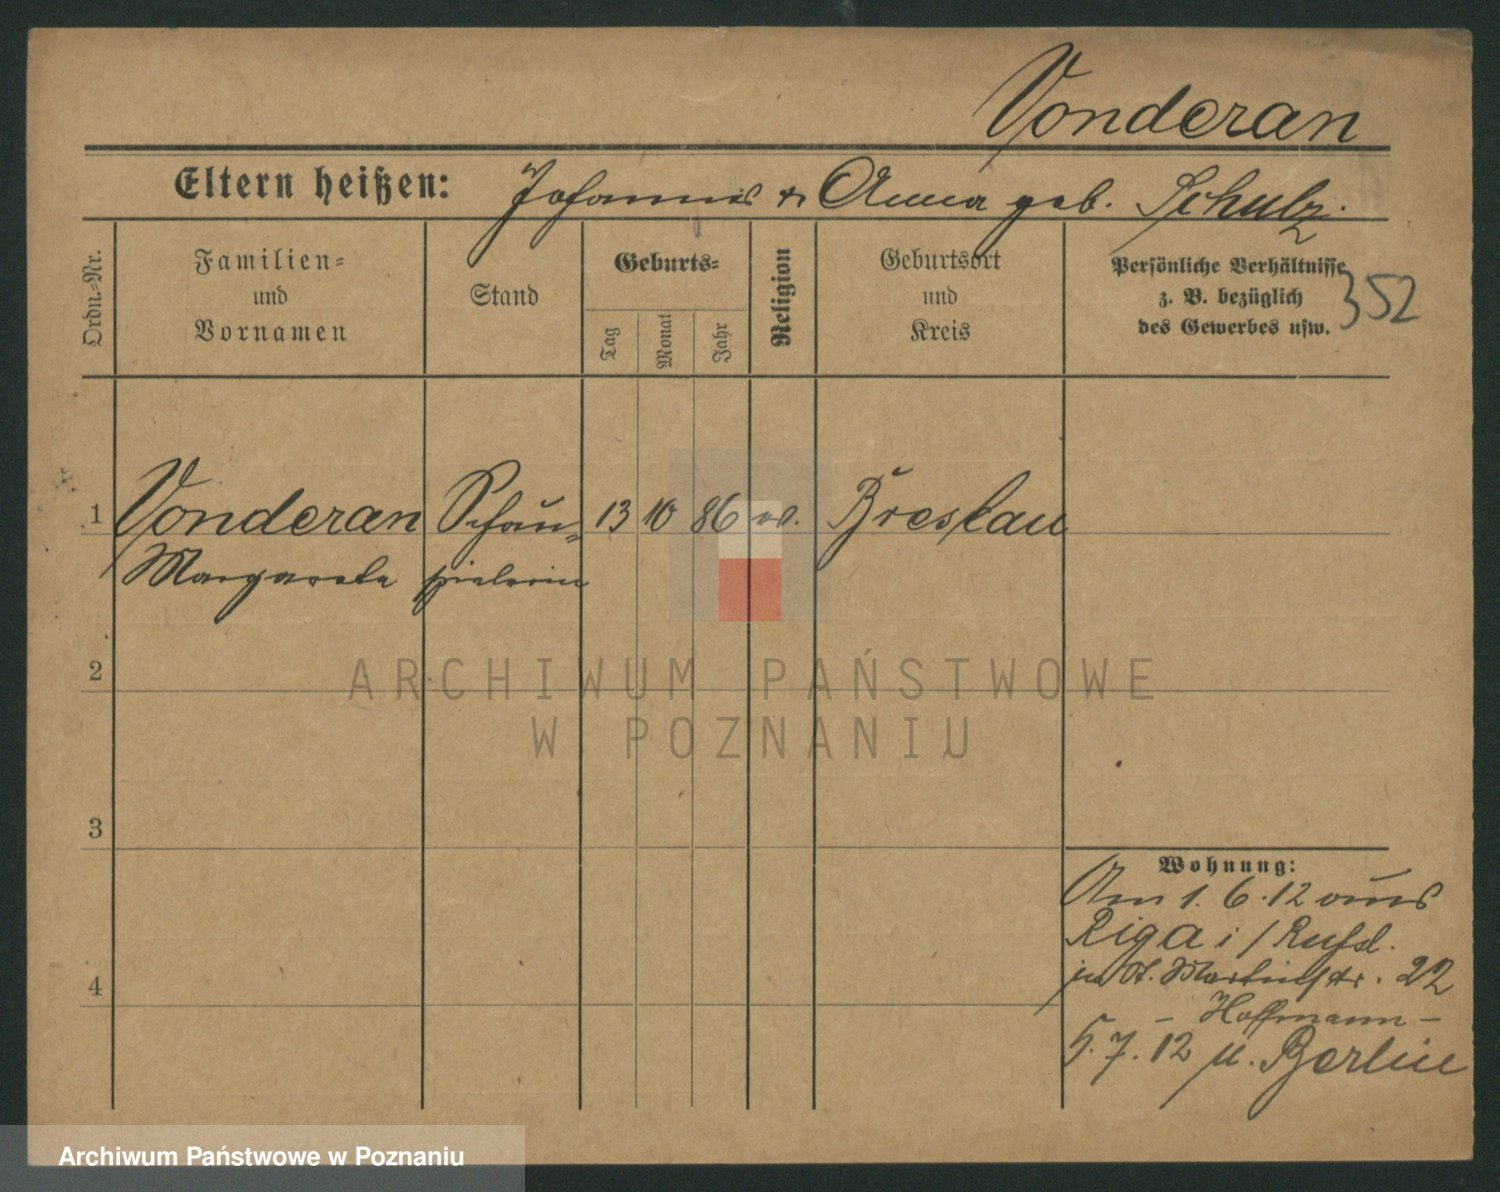 Vonderan
Eltern heißen: Johannes & Anna geb. Schulz.
Ordn.-Nr.
Familien-
und
Vornamen
Stand
Geburts-
Tag
Monat
Jahr
Religion
Geburtsort
und
Kreis
Persönliche Verhältnisse
z. B. bezüglich
des Gewerbes usw.
352
1 Vonderan Schau- 13 10 86 ev. Breslau
Margarete spielerin
2
3
4
Wohnung:
Am 1. 6. 12 aus
Riga i/Rußl.
in St. Martinstr. 22
- Hoffmann -
5. 7. 12 n. Berlin
ARCHIWUM PAŃSTWOWE
W POZNANIU
Archiwum Państwowe w Poznaniu